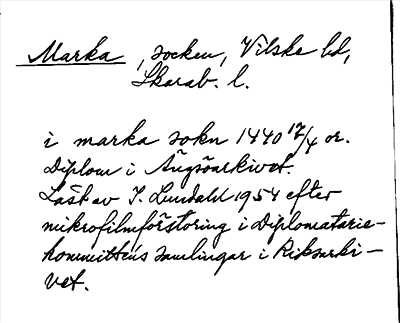 Marka, socken, Vilske hd,
Skarab. l.
i marka sokn 1440 12/4 or.
Diplom i Ängsöarkivet.
Läst av I. Lundahl 1954 efter
mikrofilmförstoring i Diplomatarie-
kommitténs samlingar i Riksarki-
vet.